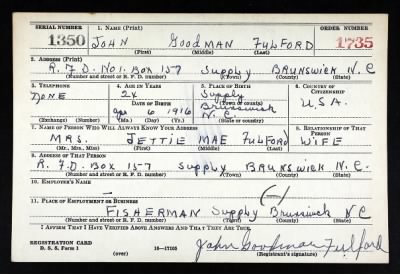 SERIAL NUMBER 1. NAME (Print) ORDER NUMBER
1350 JOHN GOODMAN FULFORD 1735
(First) (Middle) (Last)
2. ADDRESS (Print)
R.F.D. No1. Box 157 Supply BRUNSWICK N.C
(Number and street or R. F. D. number) (Town) (County) (State)
3. TELEPHONE 4. AGE IN YEARS 5. PLACE OF BIRTH 6. COUNTRY OF CITIZENSHIP
NONE 24 Supply
DATE OF BIRTH (Town or county)
6 1916 Brunswick N.C. U.S.A.
(Exchange) (Number) (Mo.) (Day) (Yr.) (State or country)
7. NAME OF PERSON WHO WILL ALWAYS KNOW YOUR ADDRESS 8. RELATIONSHIP OF THAT PERSON
MRS. JETTIE MAE FULFORD WIFE
(Mr., Mrs., Miss) (First) (Middle) (Last)
9. ADDRESS OF THAT PERSON
R.F.D. Box 157 Supply BRUNSWICK N.C.
(Number and street or R. F. D. number) (Town) (County) (State)
10. EMPLOYER'S NAME
—
11. PLACE OF EMPLOYMENT OR BUSINESS (-)
FISHERMAN Supply Brunswick NC
(Number and street or R. F. D. number) (Town) (County) (State)
I AFFIRM THAT I HAVE VERIFIED ABOVE ANSWERS AND THAT THEY ARE TRUE.
REGISTRATION CARD
D. S. S. Form 1 16-17105 John Goodman Fulford
(over) (Registrant's signature)